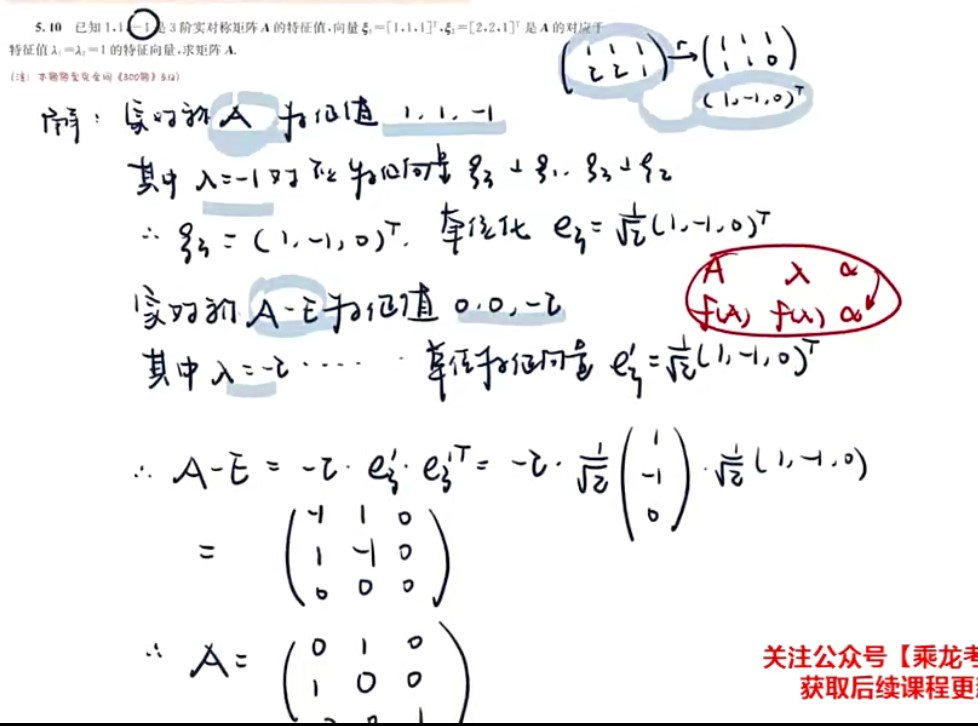 5.10 已知1,1,-1是3阶实对称矩阵A的特征值,向量ξ₁=[1,1,1]ᵀ,ξ₂=[2,2,1]ᵀ是A的对应于
特征值λ₁=λ₂=1的特征向量,求矩阵A.
(1 1 1; 2 2 1) →r (1 1 1; 1 1 0)
(1,-1,0)ᵀ
解: 实对称 A 特征值 1, 1, -1
其中 λ=-1 对应特征向量 ξ₃⊥ξ₁, ξ₃⊥ξ₂
∴ ξ₃=(1,-1,0)ᵀ, 单位化 e₃=1/√2(1,-1,0)ᵀ
A λ α
f(A) f(λ) α
实对称 A-E 特征值 0, 0, -2
其中 λ=-2 ······ 单位特征向量 e₃'=1/√2(1,-1,0)ᵀ
∴ A-E = -2·e₃'·e₃'ᵀ = -2·1/√2 (1; -1; 0)·1/√2(1,-1,0)
= (-1 1 0; 1 -1 0; 0 0 0)
∴ A= (0 1 0; 1 0 0;
关注公众号【乘龙考
获取后续课程更新